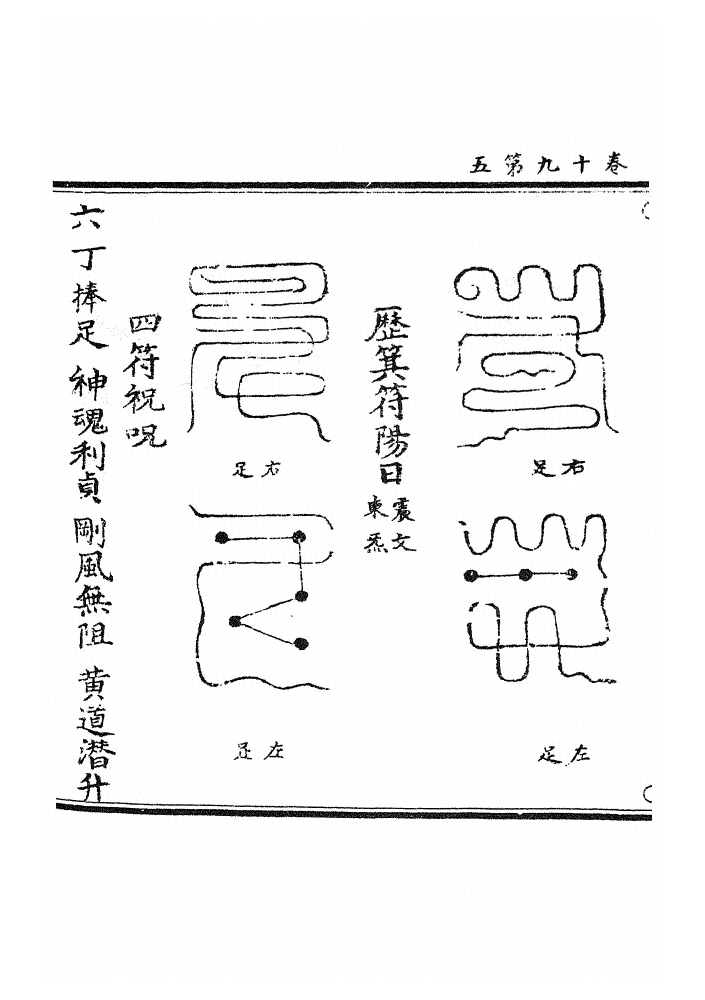 卷十九第五
右足
左足
歷箕符陽日
震文
東炁
右足
左足
四符祝呪
六丁捧足 神魂利貞 剛風無阻 黃道潜升